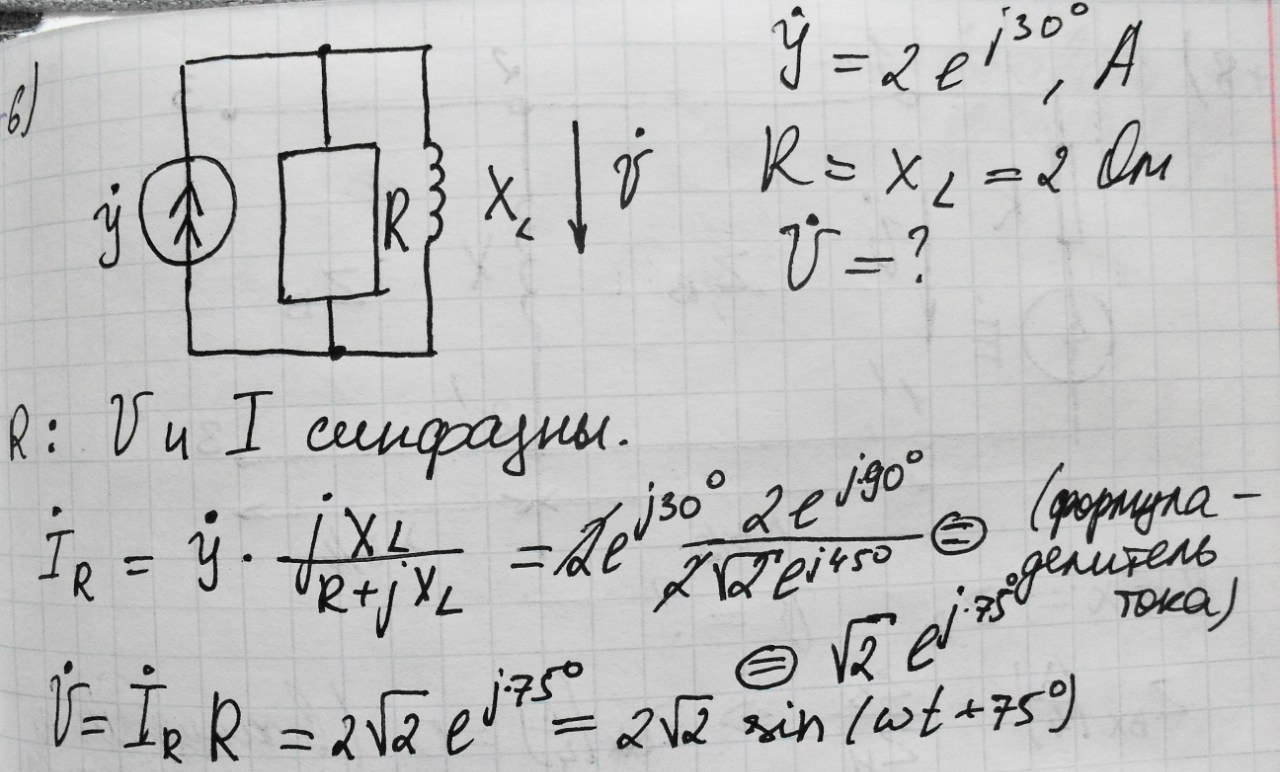 б)
J̇ = 2 e^{j30°}, A
R = X_L = 2 Ом
U̇ = ?
J̇
R
X_L
U̇
R: U и I синфазны.
İ_R = J̇ · \frac{jX_L}{R+jX_L} = 2e^{j30°} \frac{2e^{j·90°}}{2√2 e^{j45°}} ⊜ (формула – делитель тока)
⊜ √2 e^{j·75°}
U̇ = İ_R R = 2√2 e^{j·75°} = 2√2 sin(ωt+75°)